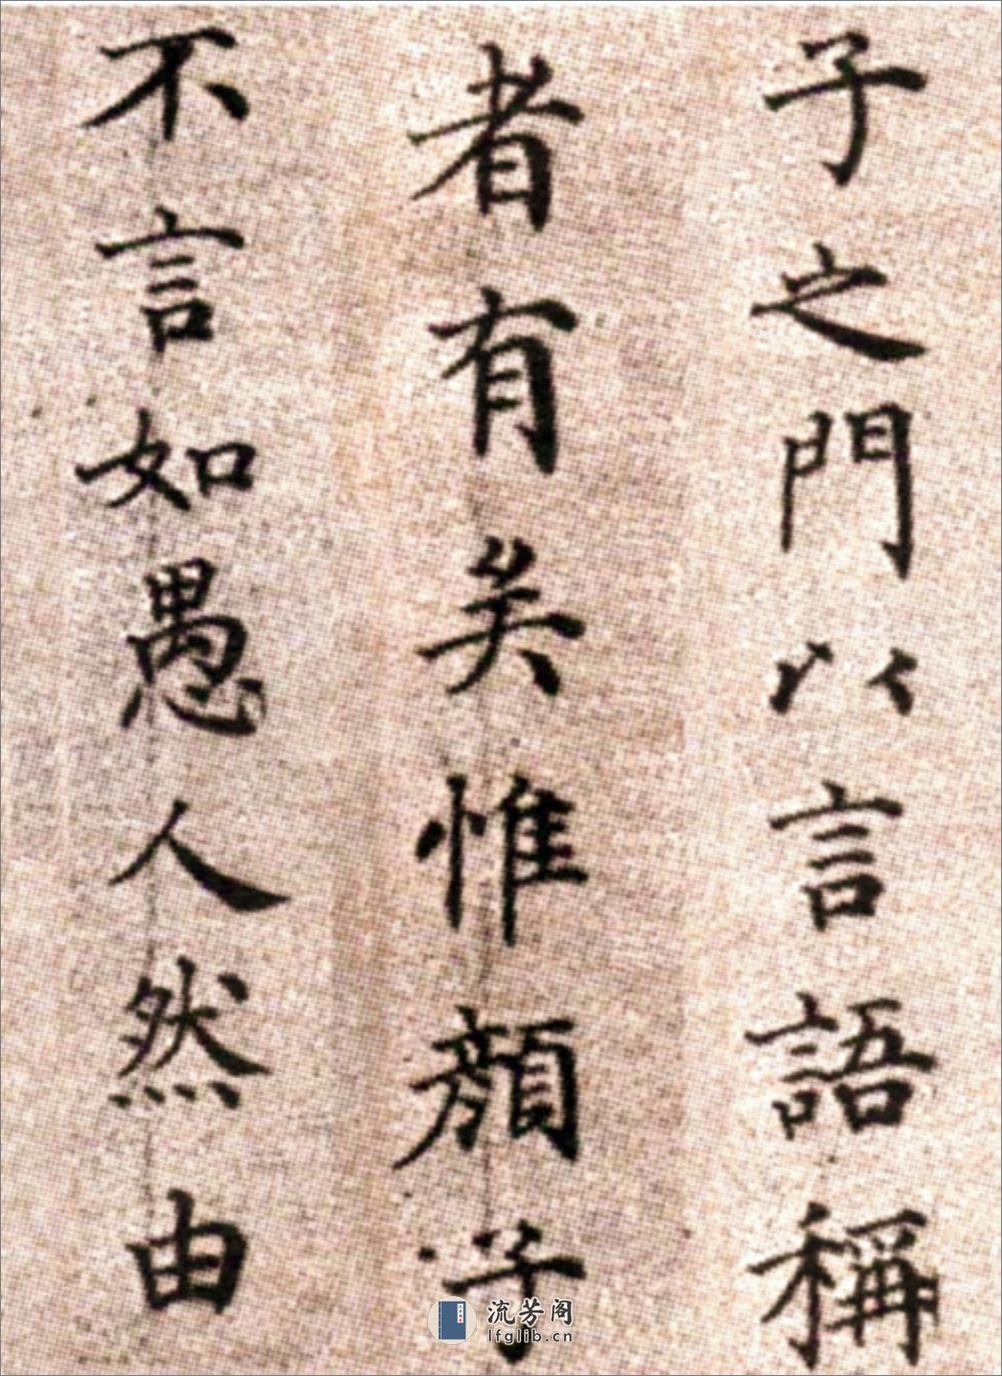 子之門以言語稱
者有矣惟顏子
不言如愚人然由
流芳阁
lfglib.cn